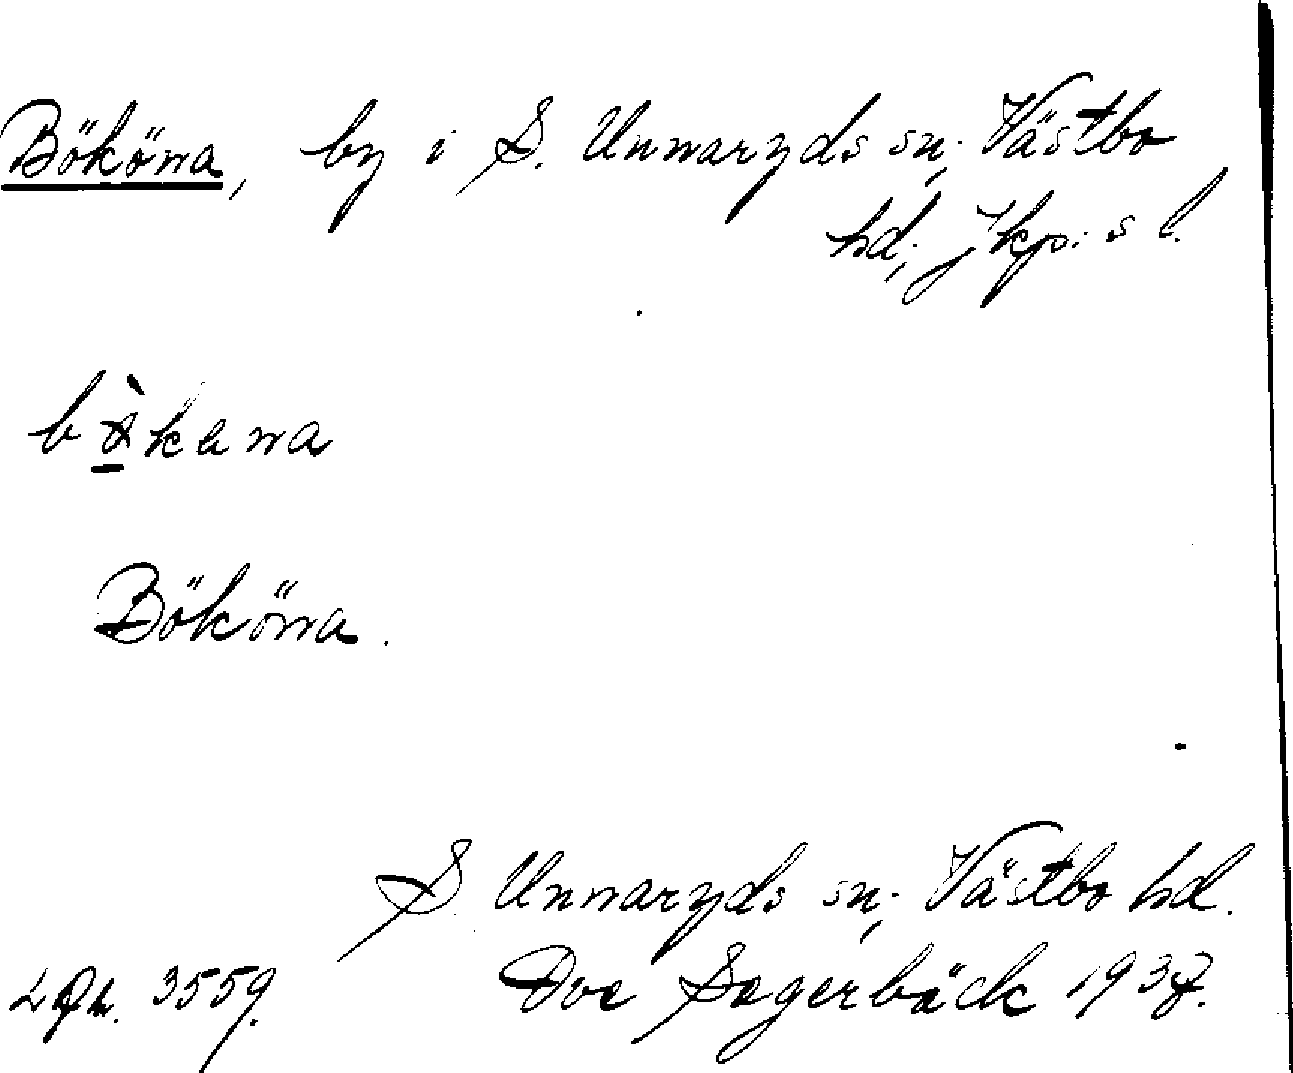 Bököna, by i S. Unnaryds sn; Västbo
hd; Jkp:s l.
Bököna.
S Unnaryds sn; Västbo hd.
3559. Ove Segerbäck